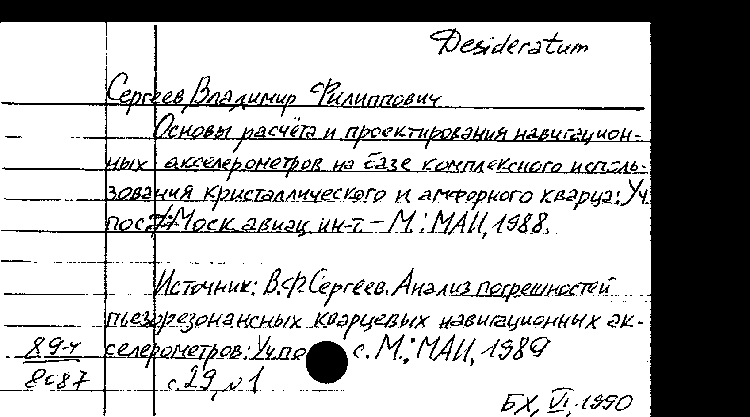 Desideratum
Сергеев Владимир Филиппович
Основы расчёта и проектирования навигацион-
ных акселерометров на базе комплексного исполь-
зования кристаллического и аморфного кварца: Уч
пос. // Моск. авиац. ин-т. – М.: МАИ, 1988.
Источник: В.Ф. Сергеев. Анализ погрешностей
пьезорезонансных кварцевых навигационных ак-
селерометров: Уч. по с. М.: МАИ, 1989
89-4
8687
с. 29, №1
БХ, VI. 1990